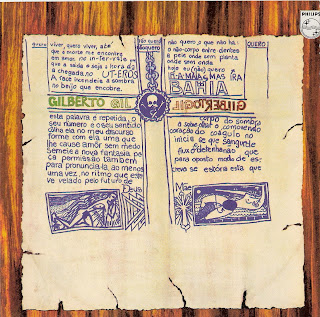 PHILIPS
quero viver, quero viver, até
que a morte me encontre
em amor, no intervalo
que a saida e seja a hora da
a chegada, no UTEROS
A face incendeia a sombra
no beijo que encobre.
não quero
quero
não quero, o que não há
o não-corpo entre dentes
a pele onde sem planta
onde sem onda
hoje eu (não) quero
IRA
BAHIA
QUERO
GILBERTO GIL
GILBERTO GIL
esta palavra é repetida, o
seu número e o seu sentido
olha ela no meu discurso
forme com ela uma que
lhe cause amor sem medo
Semeie a nova fantasia, pe
ça permissão também
para pronunciá-la, ao menos
uma vez, no ritmo que este
ve velado pelo futuro de
Deus
corpo do sombra
a sobre
coração do coágulo no
inicio se que
que
para oposto modo de es
treva se estóra esta que
Mãe